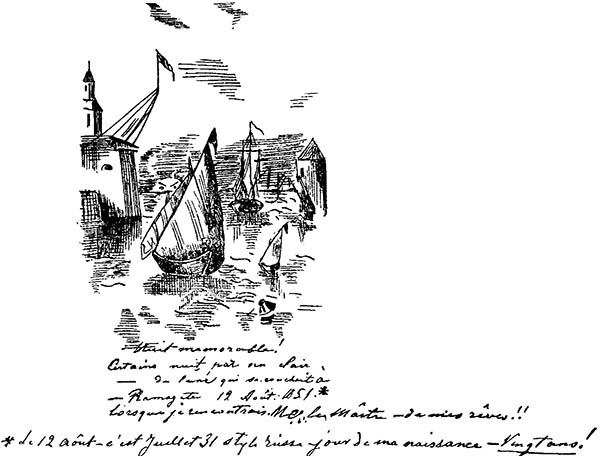 Nuit memorable!
Certaine nuit par un clair
— de lune qui se couchait à
— Ramsgate 12 Août 1851*
lorsque je rencontrais le Maître — de mes rêves!!
* Le 12 Août — c'est Juillet 31 style russe — jour de ma naissance — Vingt ans!